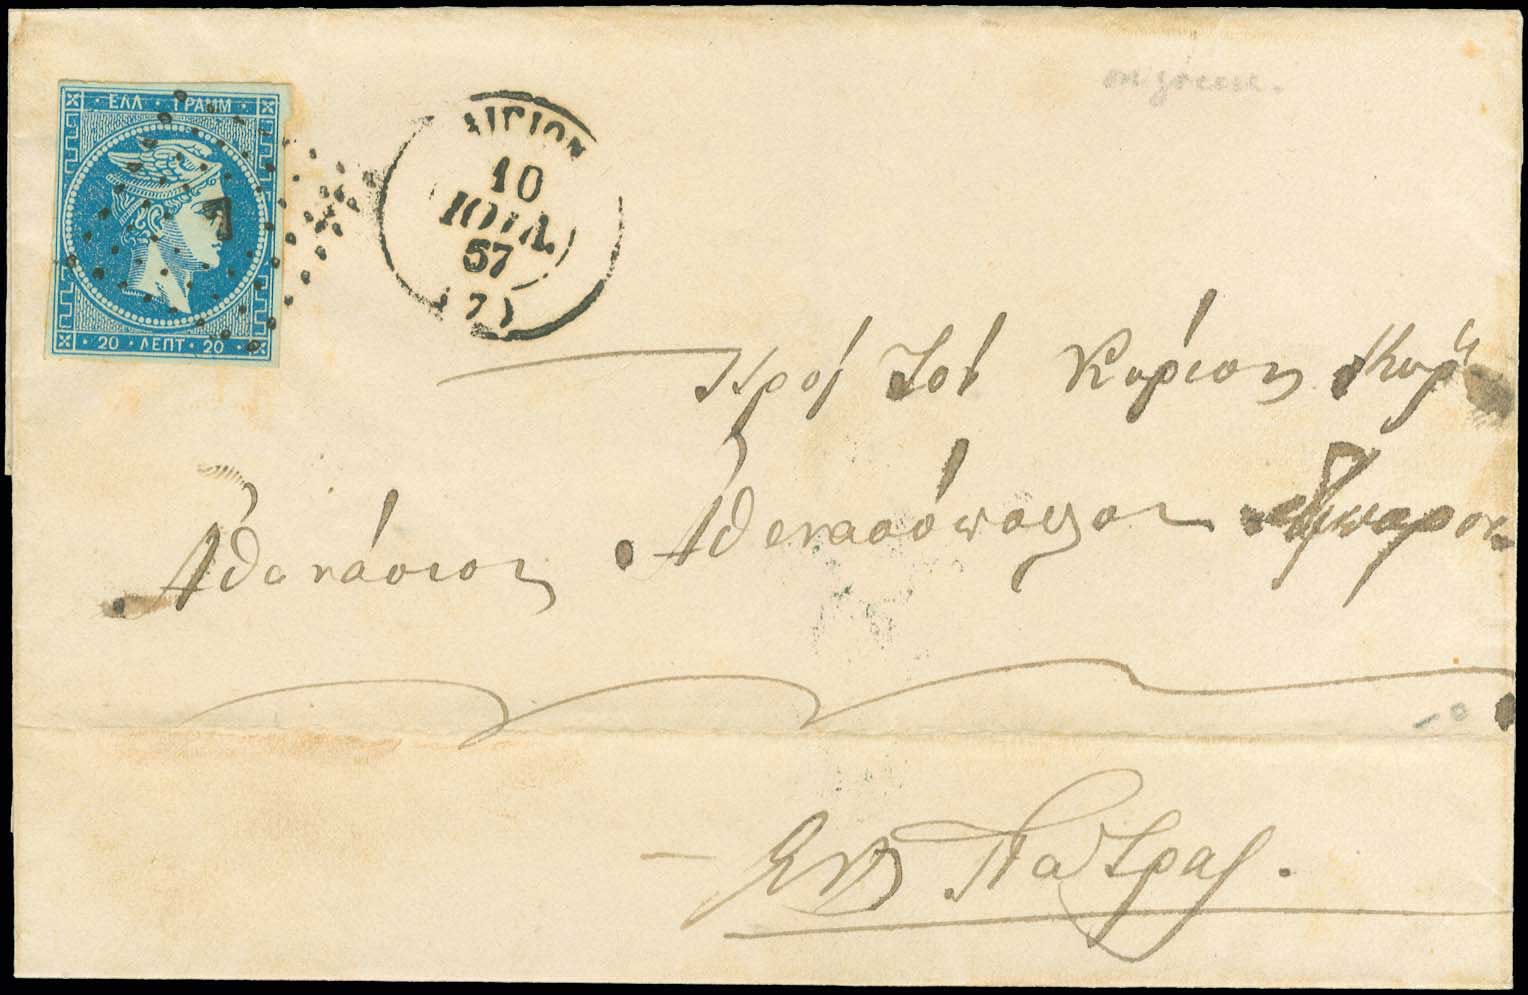 ΕΛΛ ΓΡΑΜΜ
20 ΛΕΠΤ 20
7
ΑΙΓΙΟΝ
10
ΙΟΥΛ.
57
(7)
on greene.
Πρός τόν Κύριον Κύρ
Αθανάσιον Αθανασόπουλον
Εις Πάτρας.